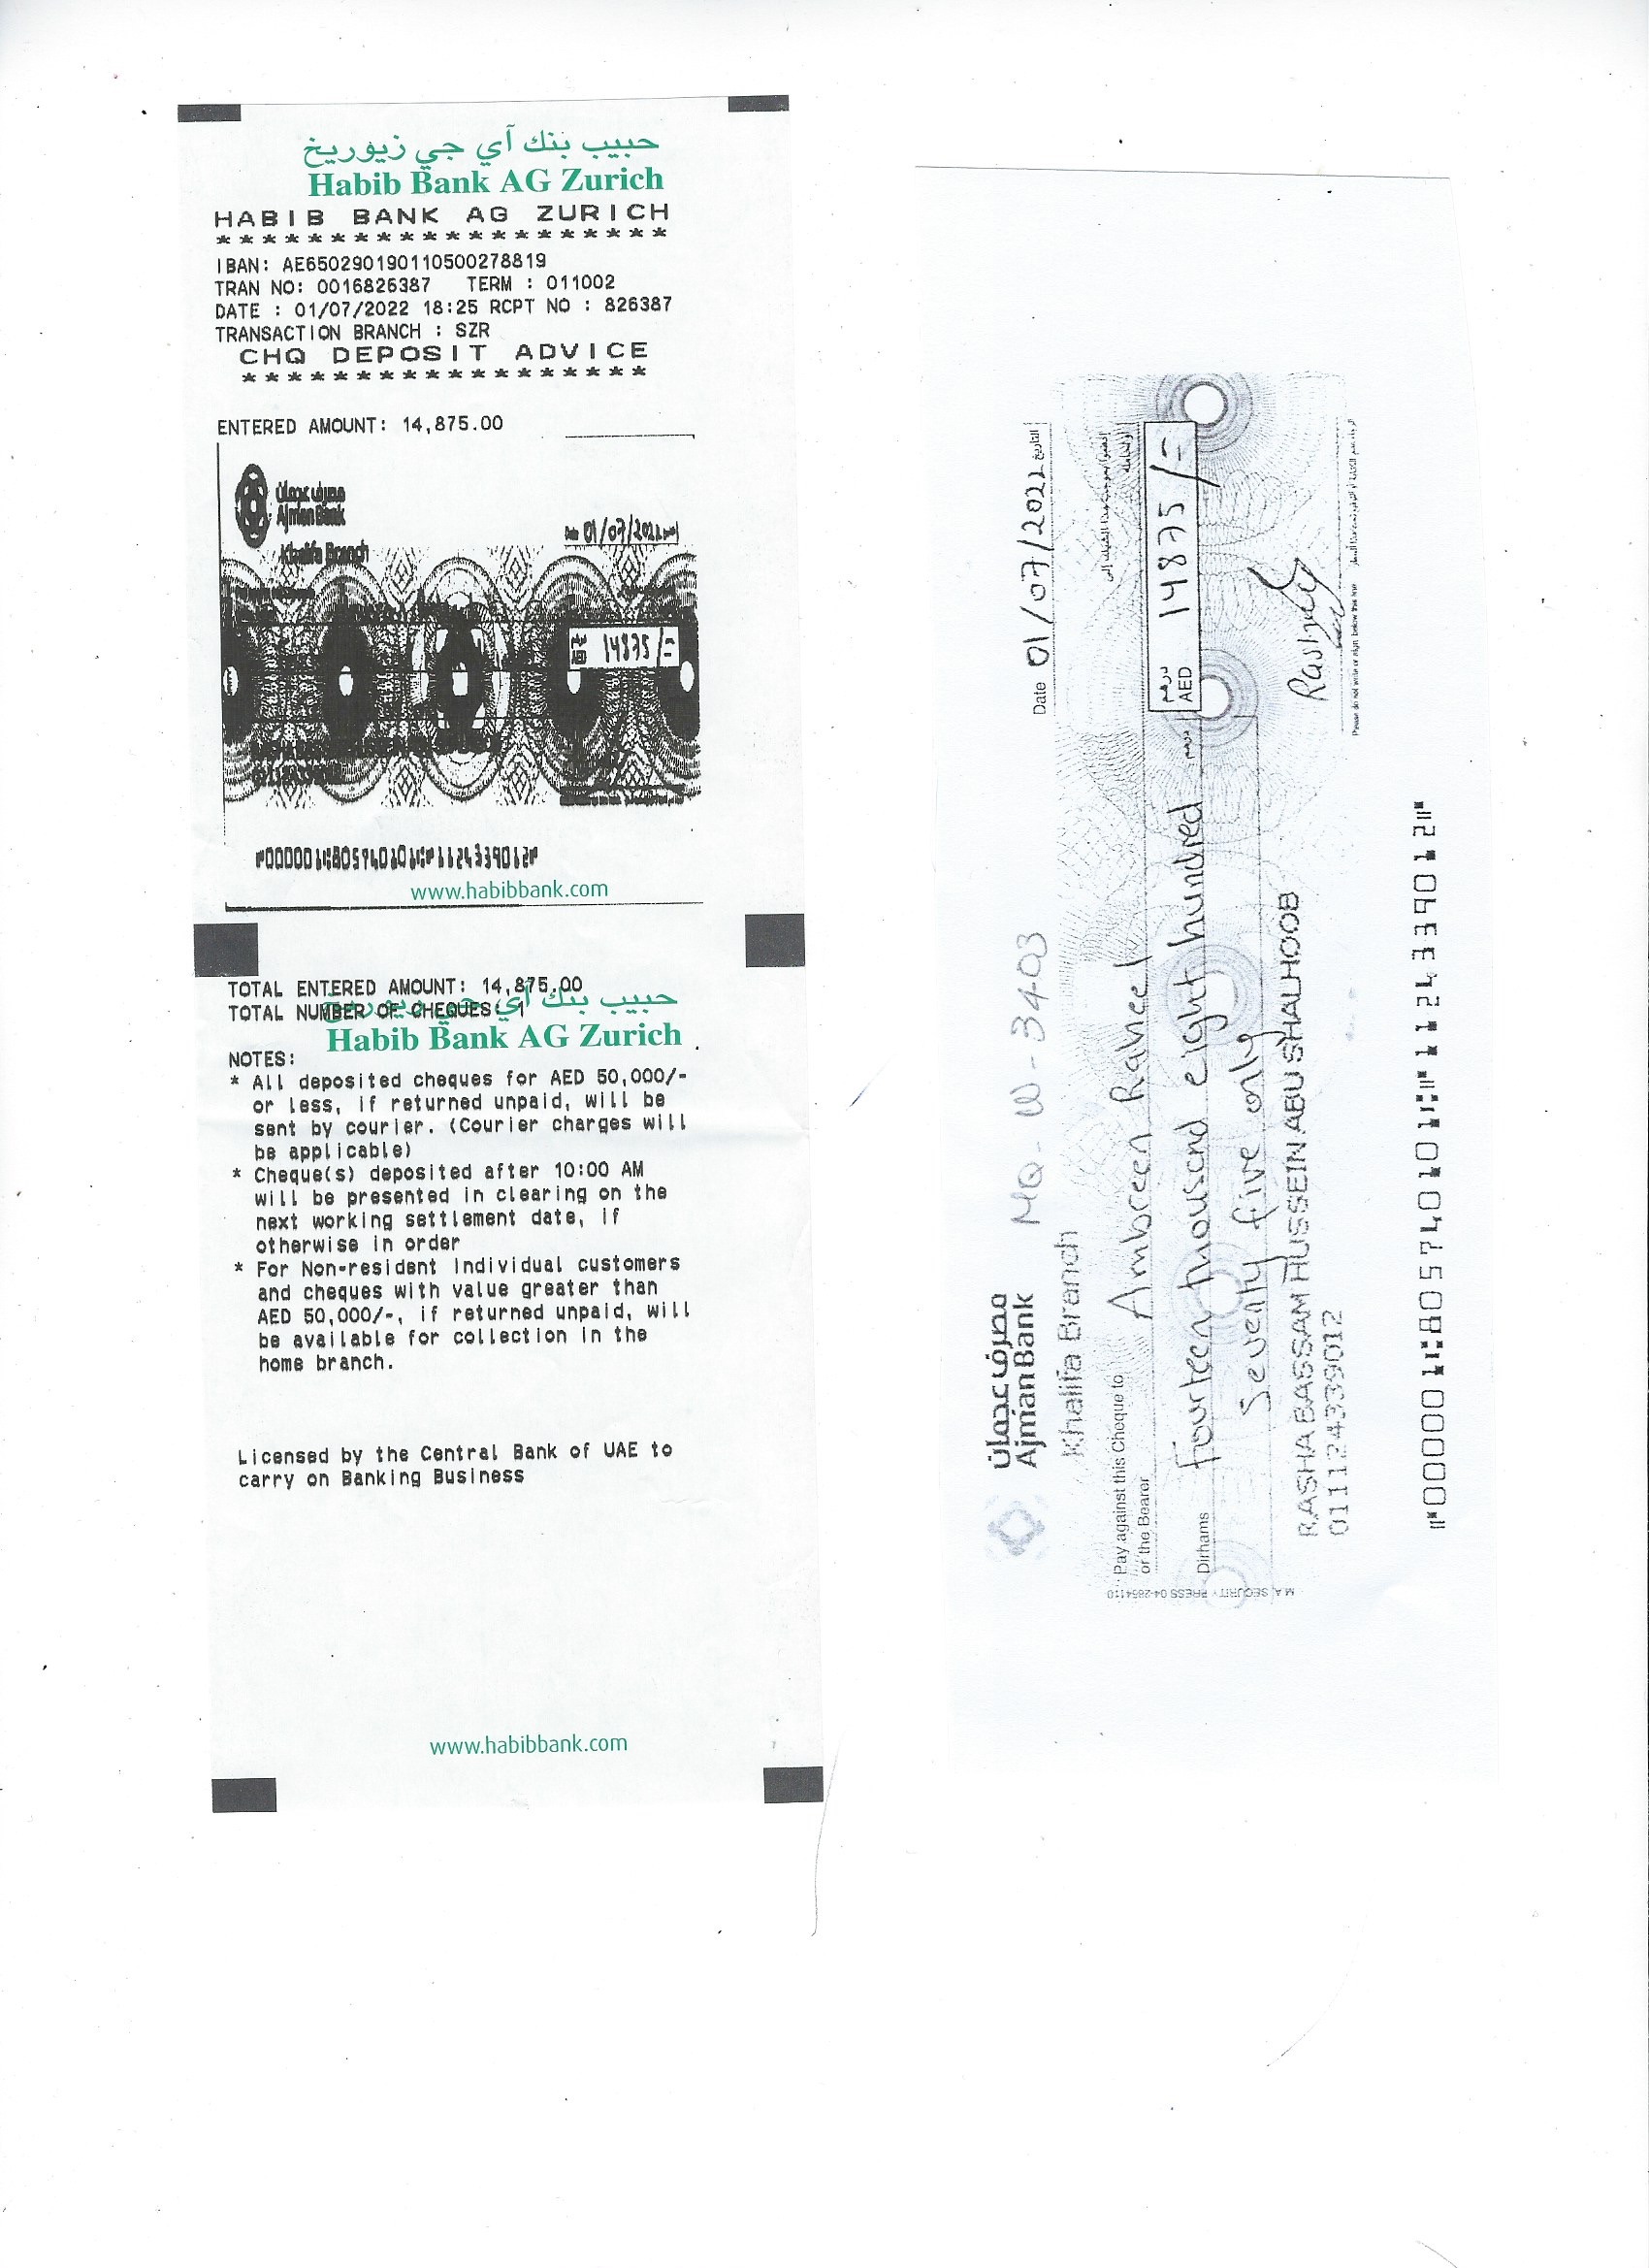 حبيب بنك آي جي زيوريخ
Habib Bank AG Zurich
HABIB BANK AG ZURICH
* * * * * * * * * * * * * * * * * * * *
IBAN: AE650290190110500278819
TRAN NO: 0016826387 TERM : 011002
DATE : 01/07/2022 18:25 RCPT NO : 826387
TRANSACTION BRANCH : SZR
CHQ DEPOSIT ADVICE
* * * * * * * * * * * * * * * * * *
ENTERED AMOUNT: 14,875.00
مصرف عجمان
Ajman Bank
Khalifa Branch
01/07/2022
AED 14875/=
⑈000001⑆805940101⑆⑈1124339012⑈
www.habibbank.com
TOTAL ENTERED AMOUNT: 14,875.00
TOTAL NUMBER OF CHEQUES: 1
حبيب بنك آي جي زيوريخ
Habib Bank AG Zurich
NOTES:
* All deposited cheques for AED 50,000/-
or less, if returned unpaid, will be
sent by courier. (Courier charges will
be applicable)
* Cheque(s) deposited after 10:00 AM
will be presented in clearing on the
next working settlement date, if
otherwise in order
* For Non-resident Individual customers
and cheques with value greater than
AED 50,000/-, if returned unpaid, will
be available for collection in the
home branch.
Licensed by the Central Bank of UAE to
carry on Banking Business
www.habibbank.com
مصرف عجمان
Ajman Bank
Khalifa Branch
MQ-W-3403
Date 01/07/2022 التاريخ
Pay against this Cheque to Ambreen Raheel
or the Bearer
Dirhams Fourteen thousand eight hundred درهم
درهم
AED 14875/=
Seventy five only
RASHA BASSAM HUSSEIN ABU SHALHOOB
011124339012
Please do not write or sign below this line
M.A. SECURITY PRESS 04-2854110
⑈000001⑆805940101⑆⑈1124339012⑈